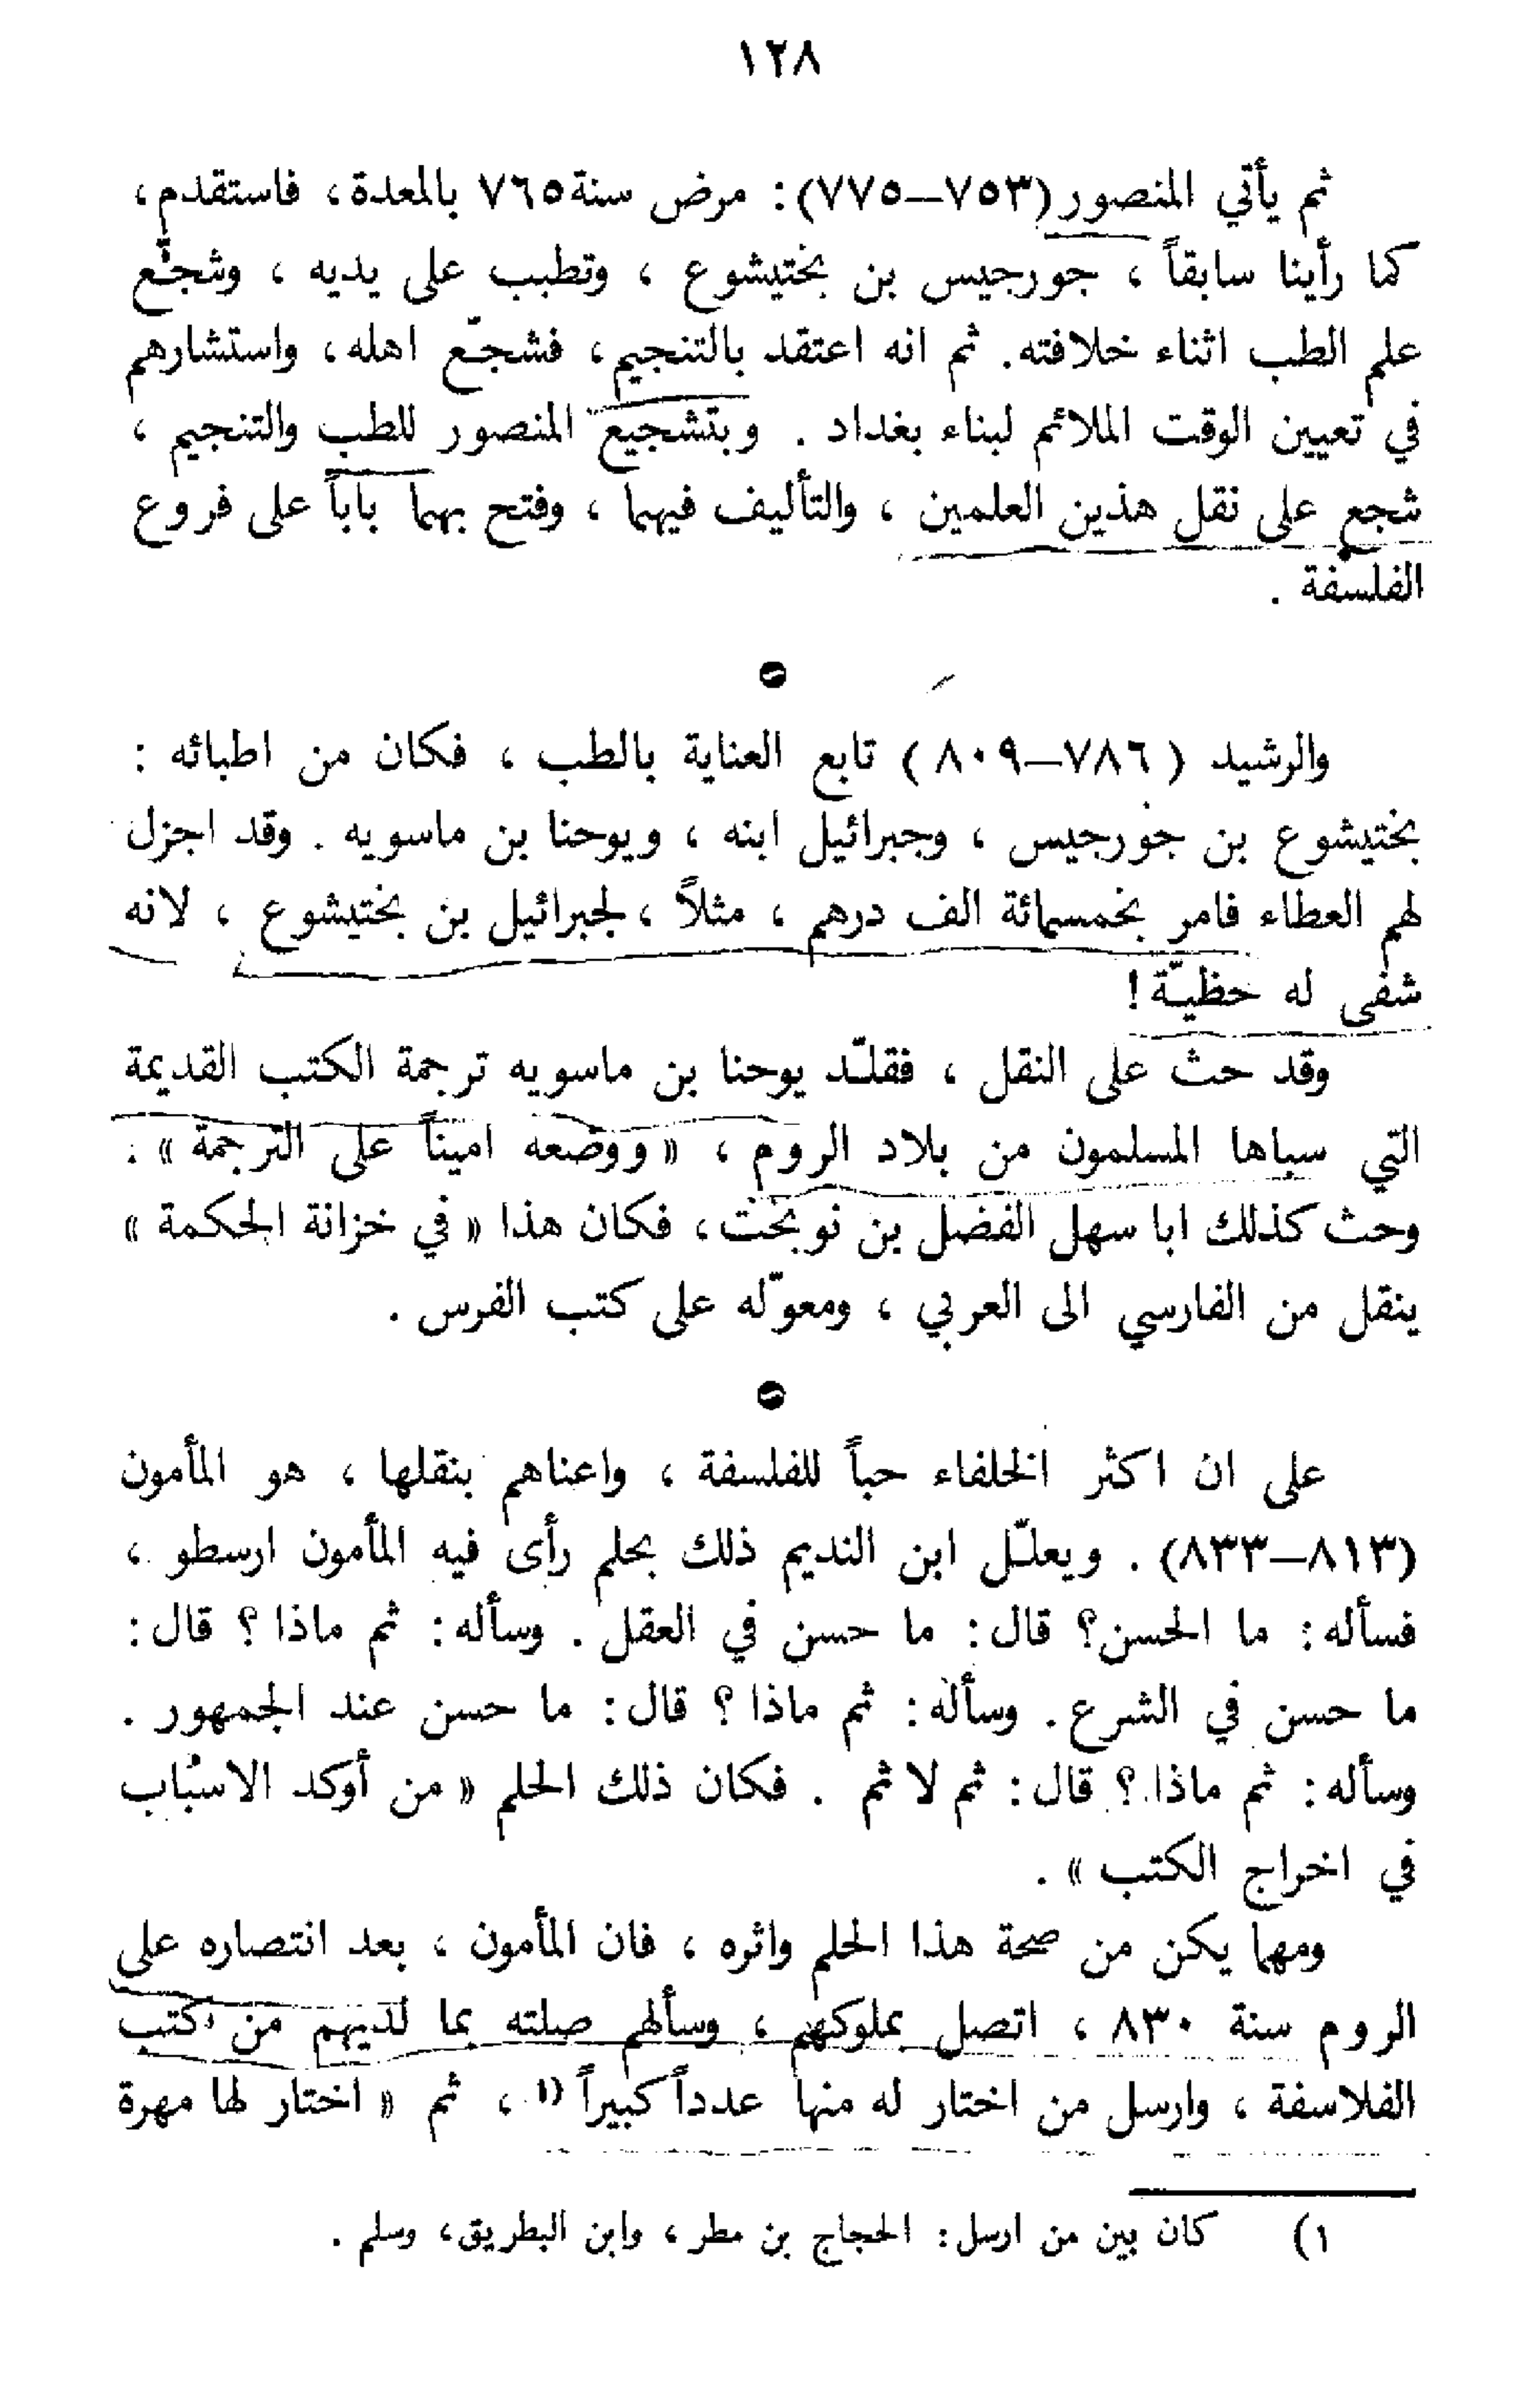 ١٢٨
ثم يأتي المنصور (٧٥٣–٧٧٥): مرض سنة ٧٦٥ بالمعدة، فاستقدم،
كما رأينا سابقاً ، جورجيس بن بختيشوع ، وتطبب على يديه ، وشجّع
علم الطب اثناء خلافته. ثم انه اعتقد بالتنجيم، فشجّع اهله، واستشارهم
في تعيين الوقت الملائم لبناء بغداد . وبتشجيع المنصور للطب والتنجيم ،
شجع على نقل هذين العلمين ، والتأليف فيهما ، وفتح بهما باباً على فروع
الفلسفة .
والرشيد ( ٧٨٦–٨٠٩ ) تابع العناية بالطب ، فكان من اطبائه :
بختيشوع بن جورجيس ، وجبرائيل ابنه ، ويوحنا بن ماسويه . وقد اجزل
لهم العطاء فامر بخمسمائة الف درهم ، مثلاً ، لجبرائيل بن بختيشوع ، لانه
شفى له حظيّة !
وقد حث على النقل ، فقلّد يوحنا بن ماسويه ترجمة الكتب القديمة
التي سباها المسلمون من بلاد الروم ، « ووضعه اميناً على الترجمة » .
وحث كذلك ابا سهل الفضل بن نوبخت، فكان هذا « في خزانة الحكمة »
ينقل من الفارسي الى العربي ، ومعوّله على كتب الفرس .
على ان اكثر الخلفاء حباً للفلسفة ، واعناهم بنقلها ، هو المأمون
(٨١٣–٨٣٣) . ويعلّل ابن النديم ذلك بحلم رأى فيه المأمون ارسطو ،
فسأله: ما الحسن؟ قال: ما حسن في العقل . وسأله: ثم ماذا ؟ قال:
ما حسن في الشرع . وسأله: ثم ماذا ؟ قال: ما حسن عند الجمهور .
وسأله: ثم ماذا ؟ قال: ثم لا ثم . فكان ذلك الحلم « من أوكد الاسباب
في اخراج الكتب » .
ومهما يكن من صحة هذا الحلم واثره ، فان المأمون ، بعد انتصاره على
الروم سنة ٨٣٠ ، اتصل بملوكهم ، وسألهم صلته بما لديهم من كتب
الفلاسفة ، وارسل من اختار له منها عدداً كبيراً ١) ، ثم « اختار لها مهرة
١) كان بين من ارسل: الحجاج بن مطر، وابن البطريق، وسلم .